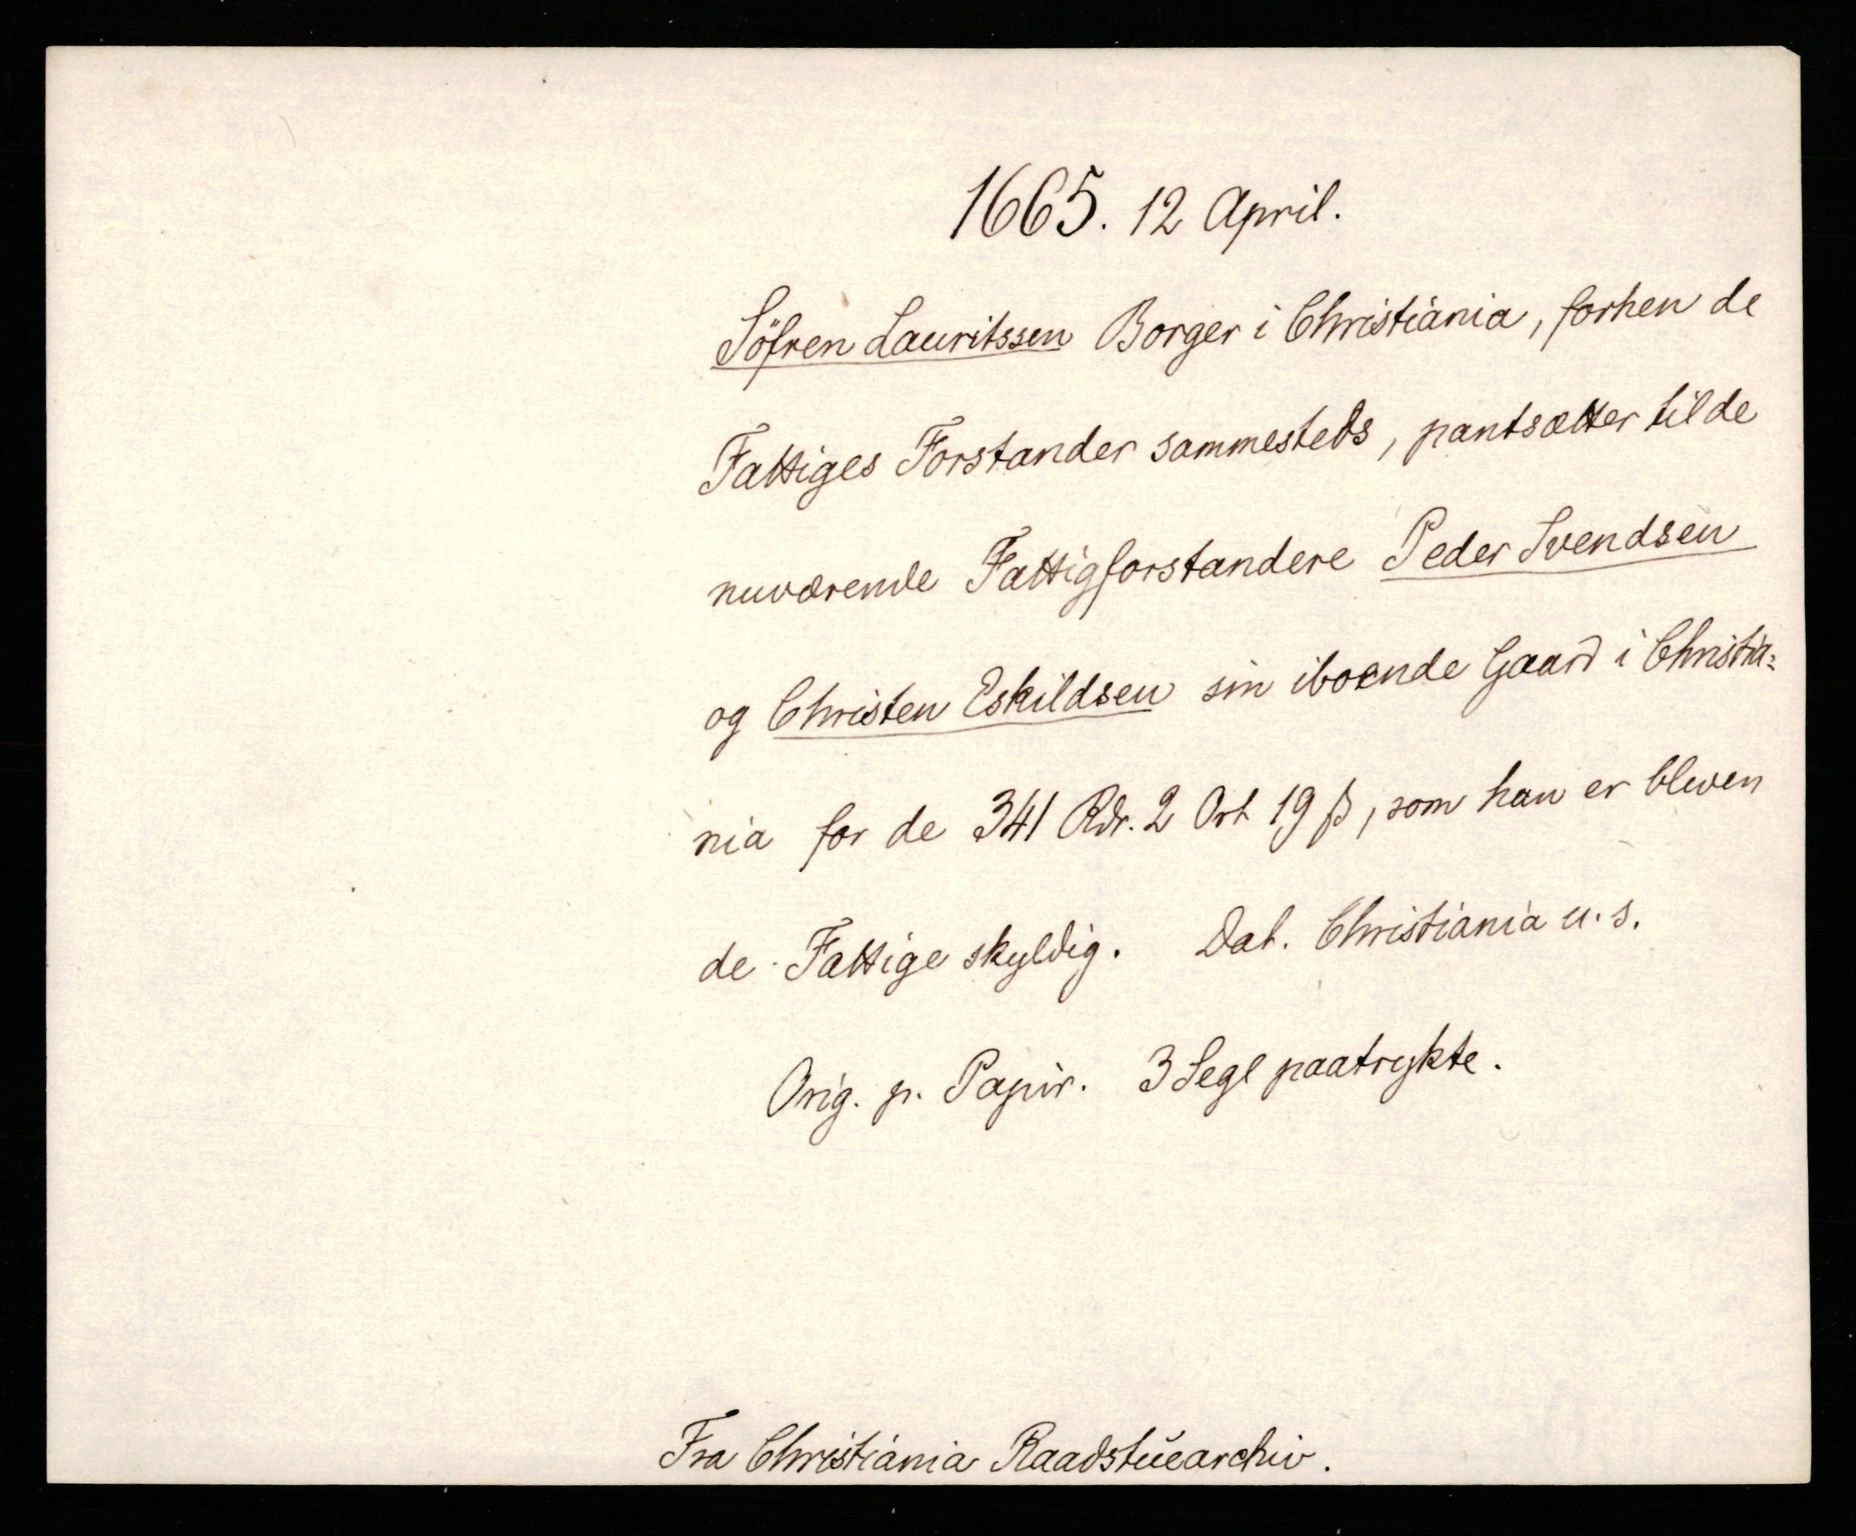 1665. 12 April.
Söfren Lauritssen Borger i Christiania, forhen de
Fattiges Forstander sammesteds, pantsætter til de
nuværende Fattigforstandere Peder Svendsen
og Christen Eskildsen sin iboende Gaard i Christia-
nia for de 341 Rdr. 2 Ort 19 ß, som han er bleven
de Fattige skyldig. Dat. Christiania u. s.
Orig. p. Papir. 3 Segl paatrykte.
Fra Christiania Raadstuearchiv.